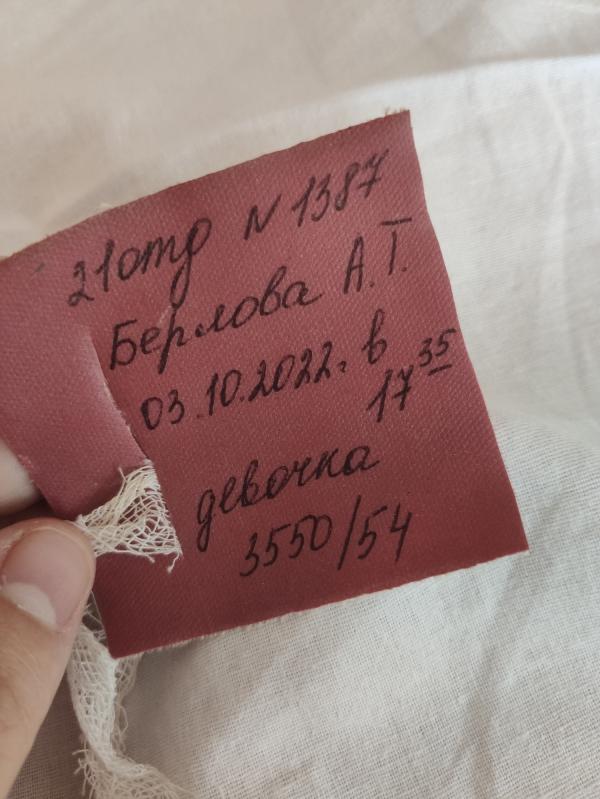 21отд N 1387
Берлова А.Г.
03.10.2022г. в
17 35
девочка
3550/54